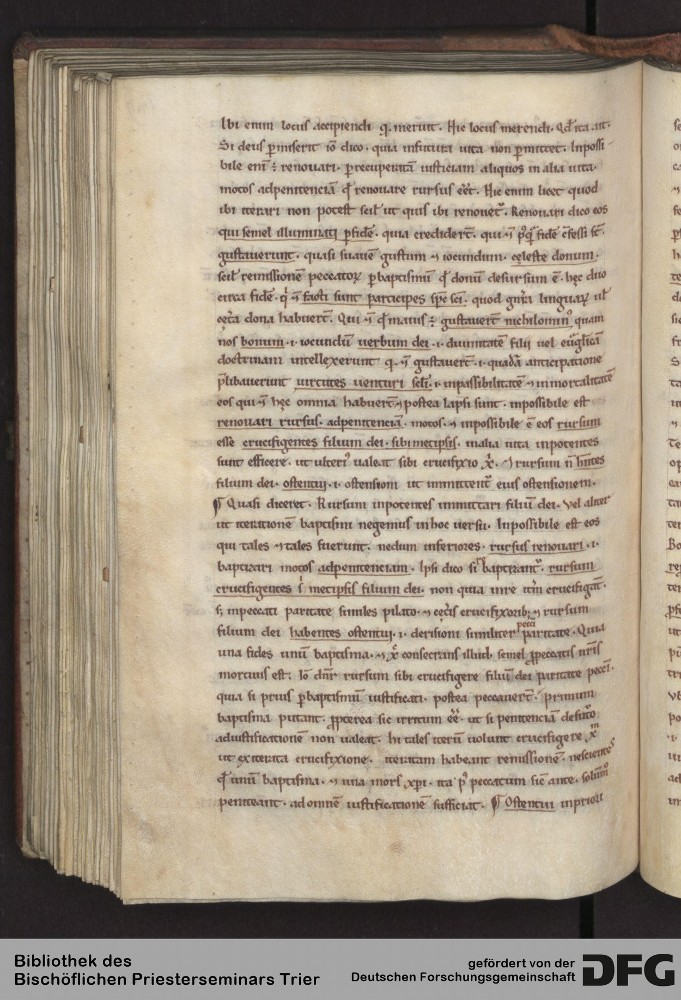 Ibi enim locus accipiendi q̄ meruit. Hic locus merendi. Qd̄ ita ait.
Si deus ꝑmiserit iō dico. quia infutura uita non ꝑmittet. Inpossi-
bile eni ÷ renouari. ꝑrecuperatā iusticiam aliquos in alia uita.
motos adpenitenciā q̄ renouare rursus eēt. Hic enim licet quod
ibi iterari non potest scil' ut quis ibi renouet᷑. Renouari dico eos
qui semel illuminati ꝑfidē. quia credidert̄. qui ⁊ fidē ꝯfessi st̄.
gustauerunt. quasi suauē gustum ⁊ iocundum. cęleste donum.
scil' remissionē peccatoꝝ ꝑbaptismū q̄ donū desursum ē. hęc duo
circa fidē. q̇ ⁊ facti sunt participes spc̄ sci. quod gn̄ra linguaꝝ ul'
cęt̄a dona habuert̄. Qui ⁊ q̄ maius ÷ gustauert̄ nichilomin᷒ quam
nos bonum .i. iocundū uerbum dei .i. diuinitatē filii uel euu̅g̅licā
doctrinam intellexerunt q̄ ⁊ gustauert̄ .i. quadā anticipatione
p̄libauerunt uirtutes uenturi scl̄i .i. inpassibilitatē ⁊ inmortalitatē
eos qui ⁊ hęc omnia habuert̄ ⁊ postea lapsi sunt. inpossibile est
renouari rursus. adpenitenciā. motos. ⁊ inpossibile ē eos rursum
esse crucifigentes filium dei. sibimetipsis. inalia uita inpotentes
sunt efficere. ut ulteri᷒ ualeat sibi crucifixio x̄. ⁊ rursum ñ hñtes
filium dei. ostentui .i. ostensioni ut inmittent̄ eius ostensionem.
¶ Quasi diceret. Rursum inpotentes inmittari filiū dei. Vel aliter
ut iterationē baptismi negemus inhoc uersu. Inpossibile est eos
qui tales ⁊ tales fuerunt. nedum inferiores. rursus renouari .i.
baptizari motos adpenitenciam. Ipsi dico si baptizant᷑. rursum
crucifigentes s̄ metipsis filium dei. non quia inre itm̄ crucifigāt.
s; inpeccati paritate similes pilato. ⁊ cęt̄is crucifixorib; ⁊ rursum
filium dei habentes ostentui .i. derisioni similiter pecc̄i paritate. Quia
una fides unū baptisma. ⁊ x̄ consecrans illud. semel ꝓpeccatis nr̄is
mortuus est. Iō dn̄r rursum sibi crucifigere filiū dei paritate pecc̄i.
quia si prius ꝑbaptismū iustificati. postea peccauert̄. primum
baptisma putant. ꝓpterea sic irritum eē. ut si penitenciā
adiustificationē non ualeat. hi tales iterū uolunt crucifigere x̄m
ut ex iterata crucifixione. iteratam habeant remissionē. nescientes
q̄ unū baptisma. ⁊ una mors xp̄i. ita p᷒ peccatum sic̄ ante. solūm᷒
peniteant. ad omnē iustificationē sufficiat. ¶ Ostentui inpriori
Bibliothek des
Bischöflichen Priesterseminars Trier
gefördert von der
Deutschen Forschungsgemeinschaft
DFG